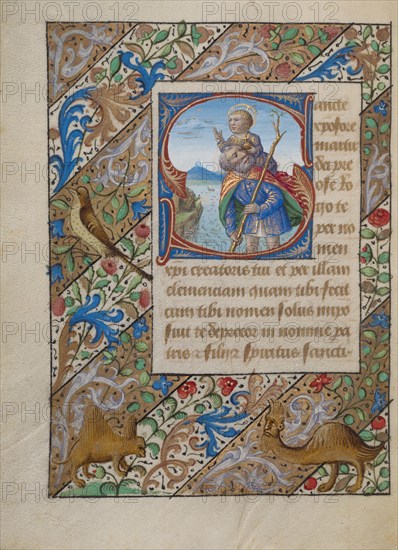 Sancte
xpofore
martir
dei pre
ciose Ro
go te
per no
men
xpi creatoris tui et per illam
clemenciam quam tibi fecit
cum tibi nomen solus impo
suit te deprecor in nomine pa
tris & filij & spiritus sancti